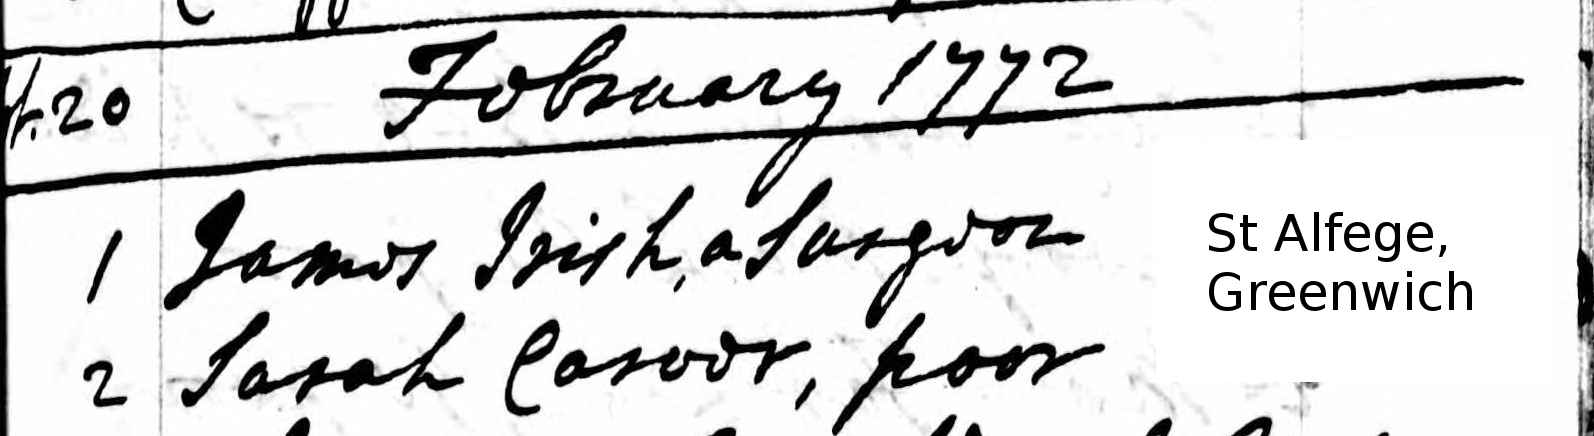 f.20 February 1772
1 James Irish, a Surgeon
2 Sarah Carver, poor
St Alfege,
Greenwich